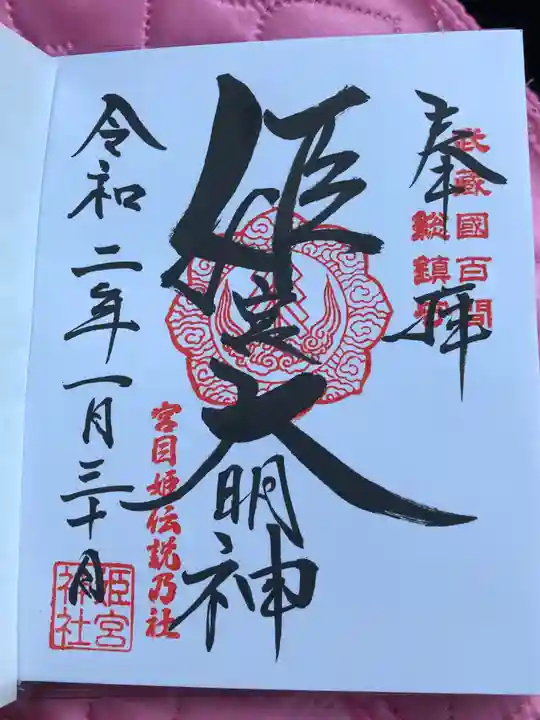 奉拝
武蔵國百間
総鎮守
姫宮大明神
宮目姫伝説乃社
令和二年一月三十日
姫宮
神社